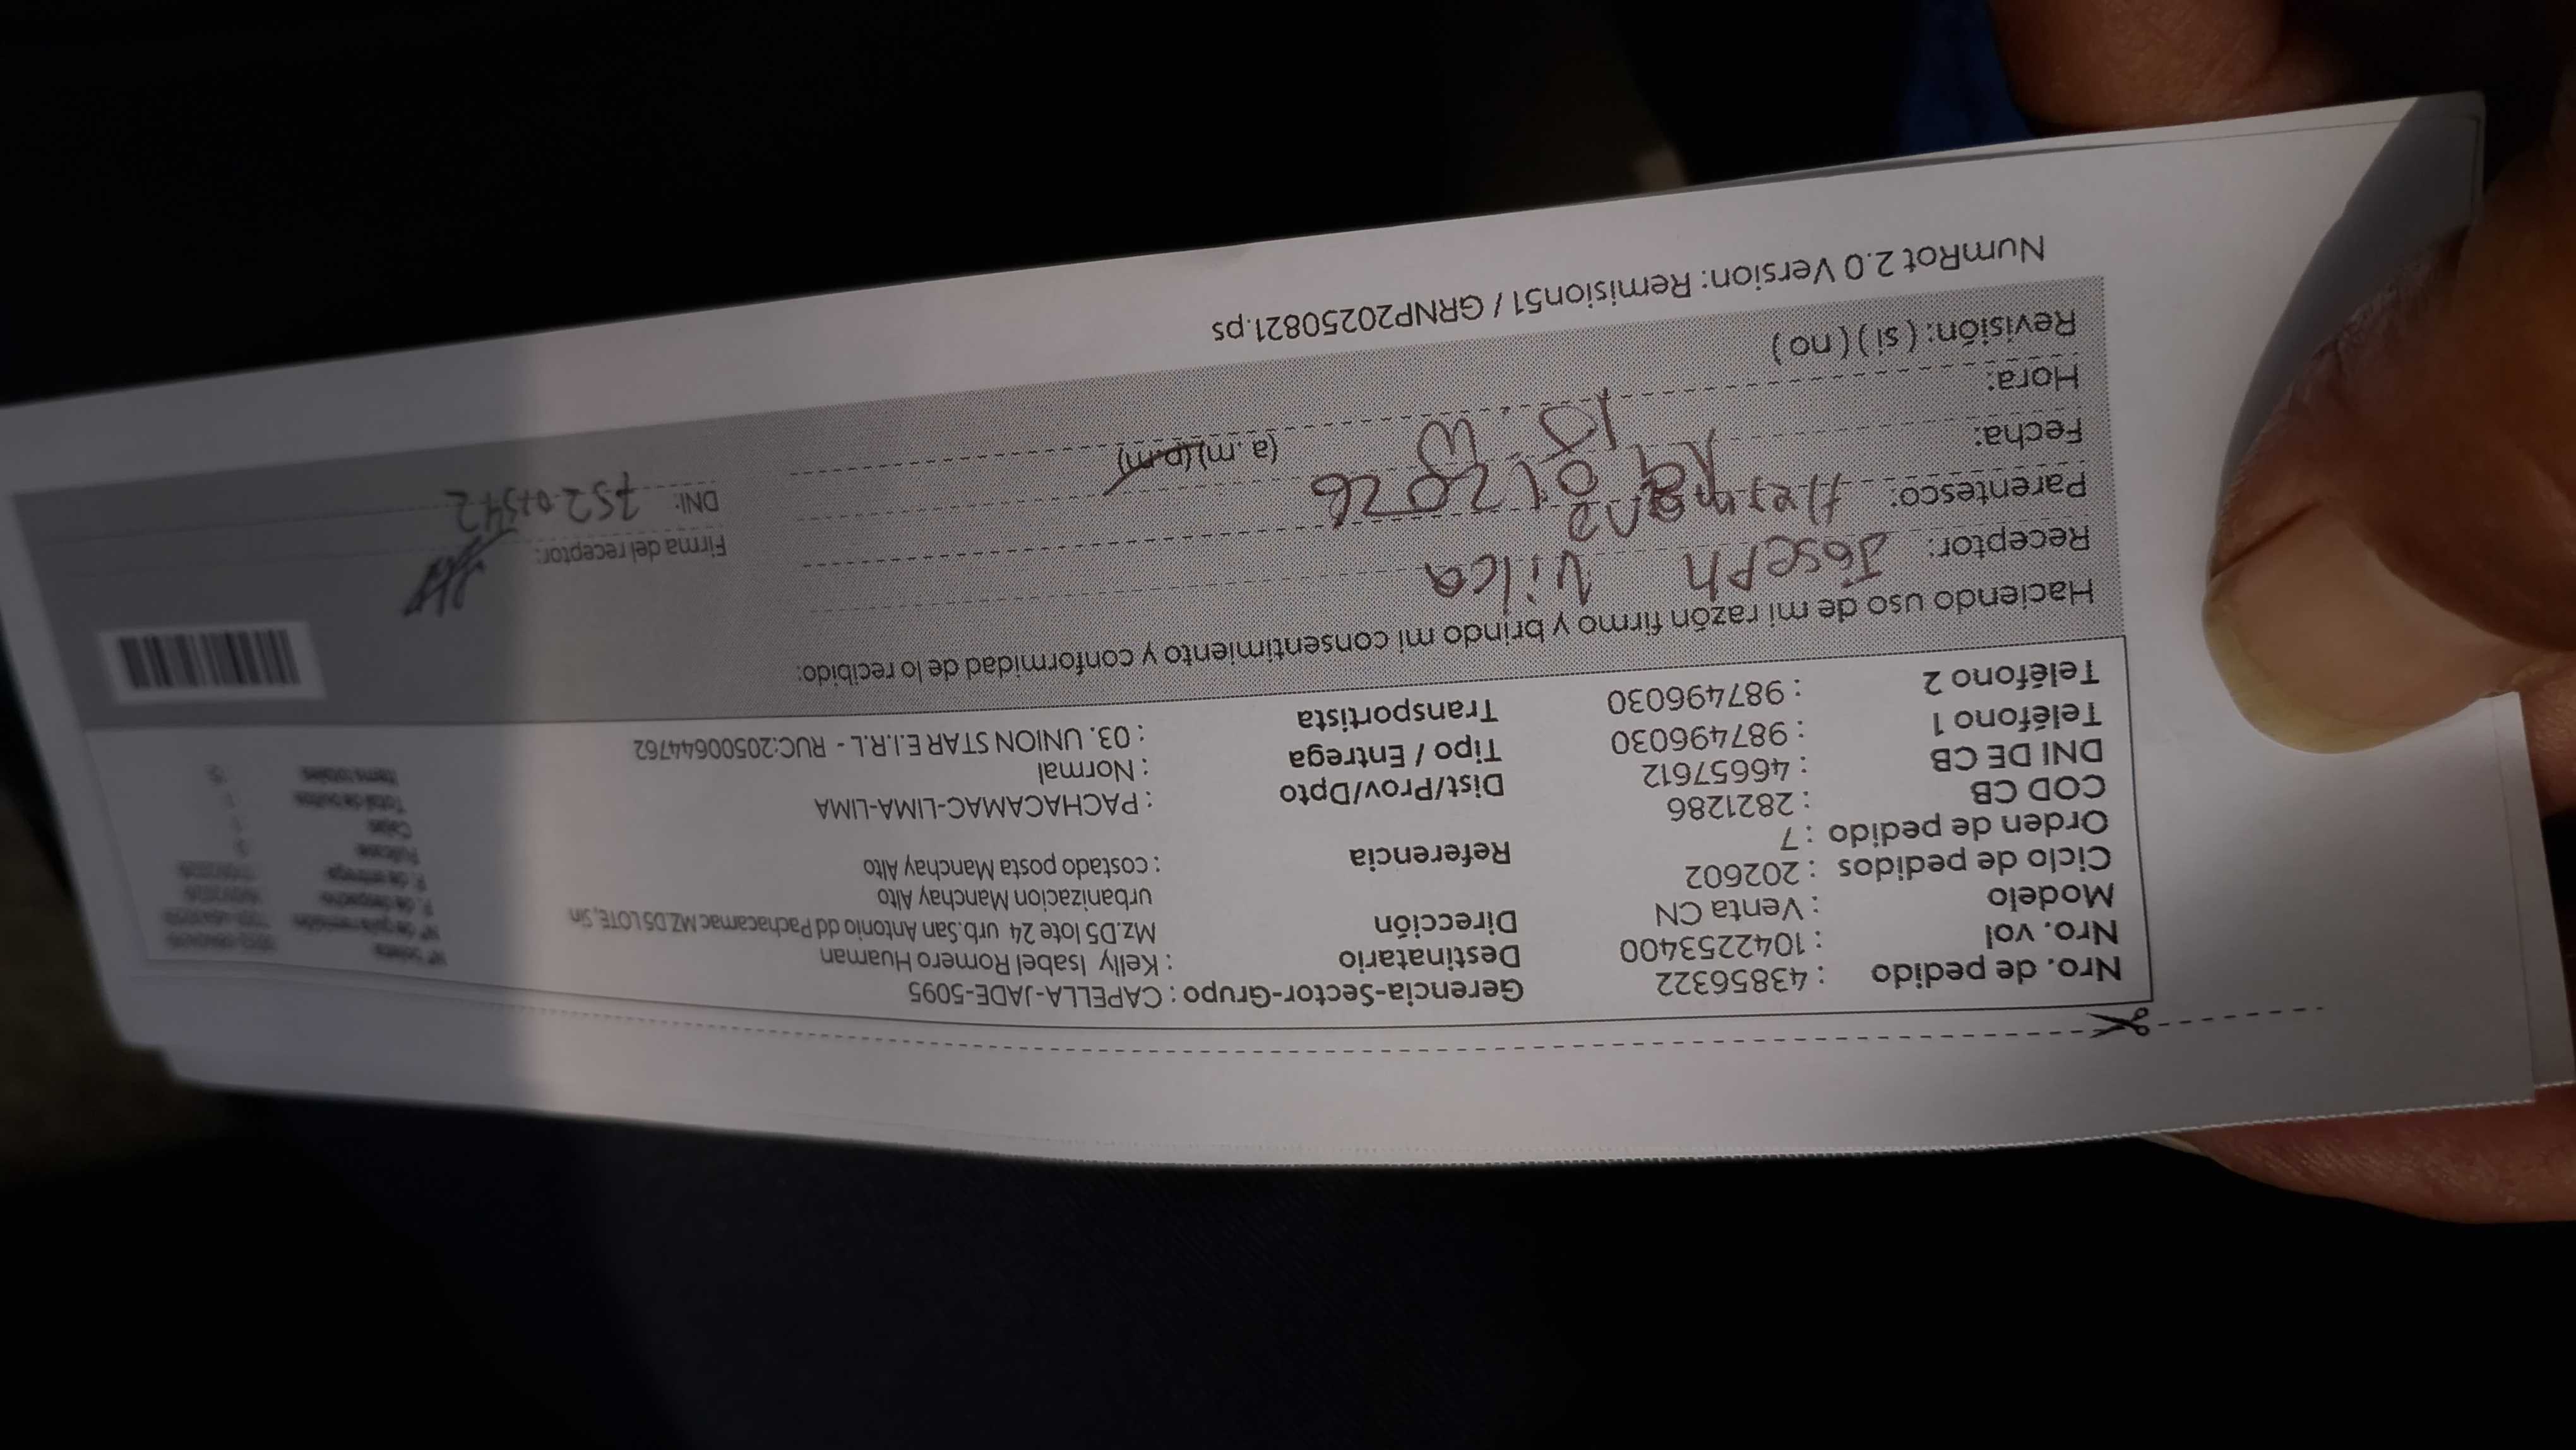 Nro. de pedido : 43856322 Gerencia-Sector-Grupo : CAPELLA-JADE-5095
Nro. vol : 1042253400 Destinatario : Kelly Isabel Romero Huaman
Modelo : Venta CN Dirección Mz.D5 lote 24 urb.San Antonio dd Pachacamac MZ.D5 LOTE, Sin
Ciclo de pedidos : 202602 urbanizacion Manchay Alto
Orden de pedido : 7 Referencia : costado posta Manchay Alto
COD CB : 2821286 Dist/Prov/Dpto : PACHACAMAC-LIMA-LIMA
DNI DE CB : 46657612 Tipo / Entrega : Normal
Teléfono 1 : 987496030 Transportista : 03. UNION STAR E.I.R.L - RUC:20500644762
Teléfono 2 : 987496030
Nº de guía remisión
F. de despacho
F. de entrega
Total de bultos
Items totales
Haciendo uso de mi razón firmo y brindo mi consentimiento y conformidad de lo recibido:
Receptor: Joseph Vilca
Firma del receptor:
Parentesco: Hermano
DNI:
Fecha: 01 2026
Hora: (a.m)(p.m)
Revisión: ( si ) ( no )
NumRot 2.0 Version: Remision51 / GRNP20250821.ps